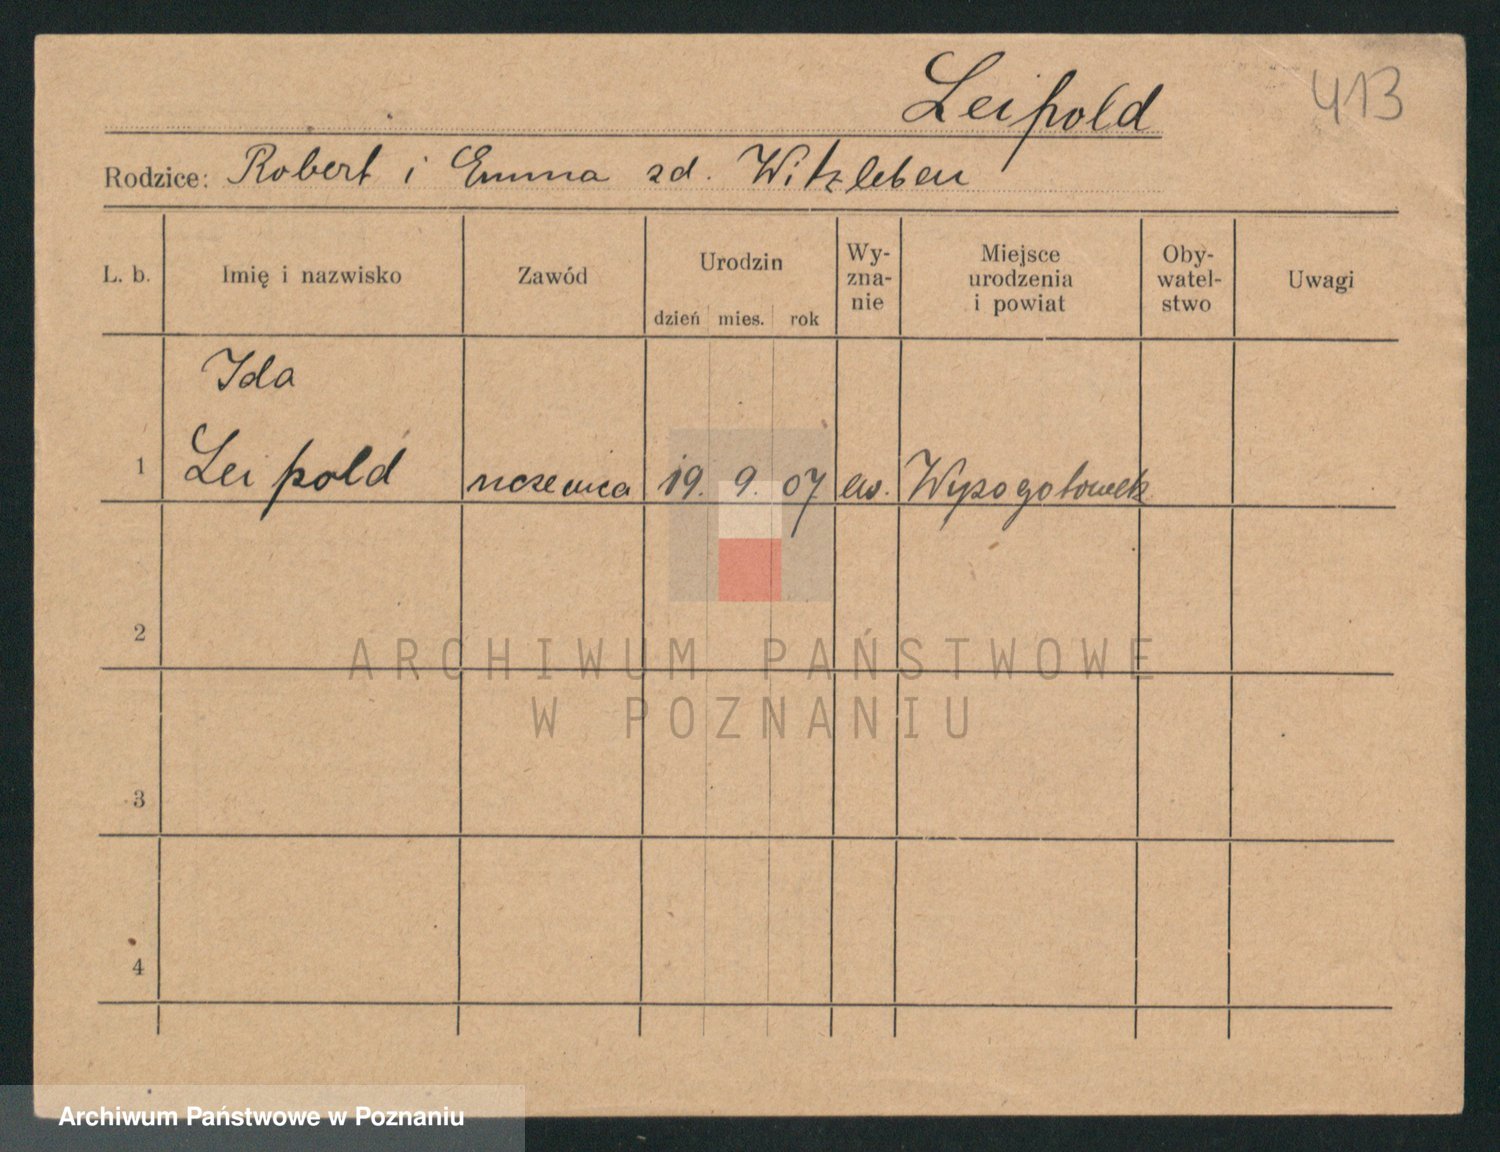 413
Leipold
Rodzice: Robert i Emma zd. Witzleben
L. b.
Imię i nazwisko
Zawód
Urodzin
dzień mies. rok
Wy-
zna-
nie
Miejsce
urodzenia
i powiat
Oby-
watel-
stwo
Uwagi
Ida
1 Leipold uczenica 19. 9. 07 ew. Wyzogotowek
2
ARCHIWUM PAŃSTWOWE
W POZNANIU
3
4
Archiwum Państwowe w Poznaniu